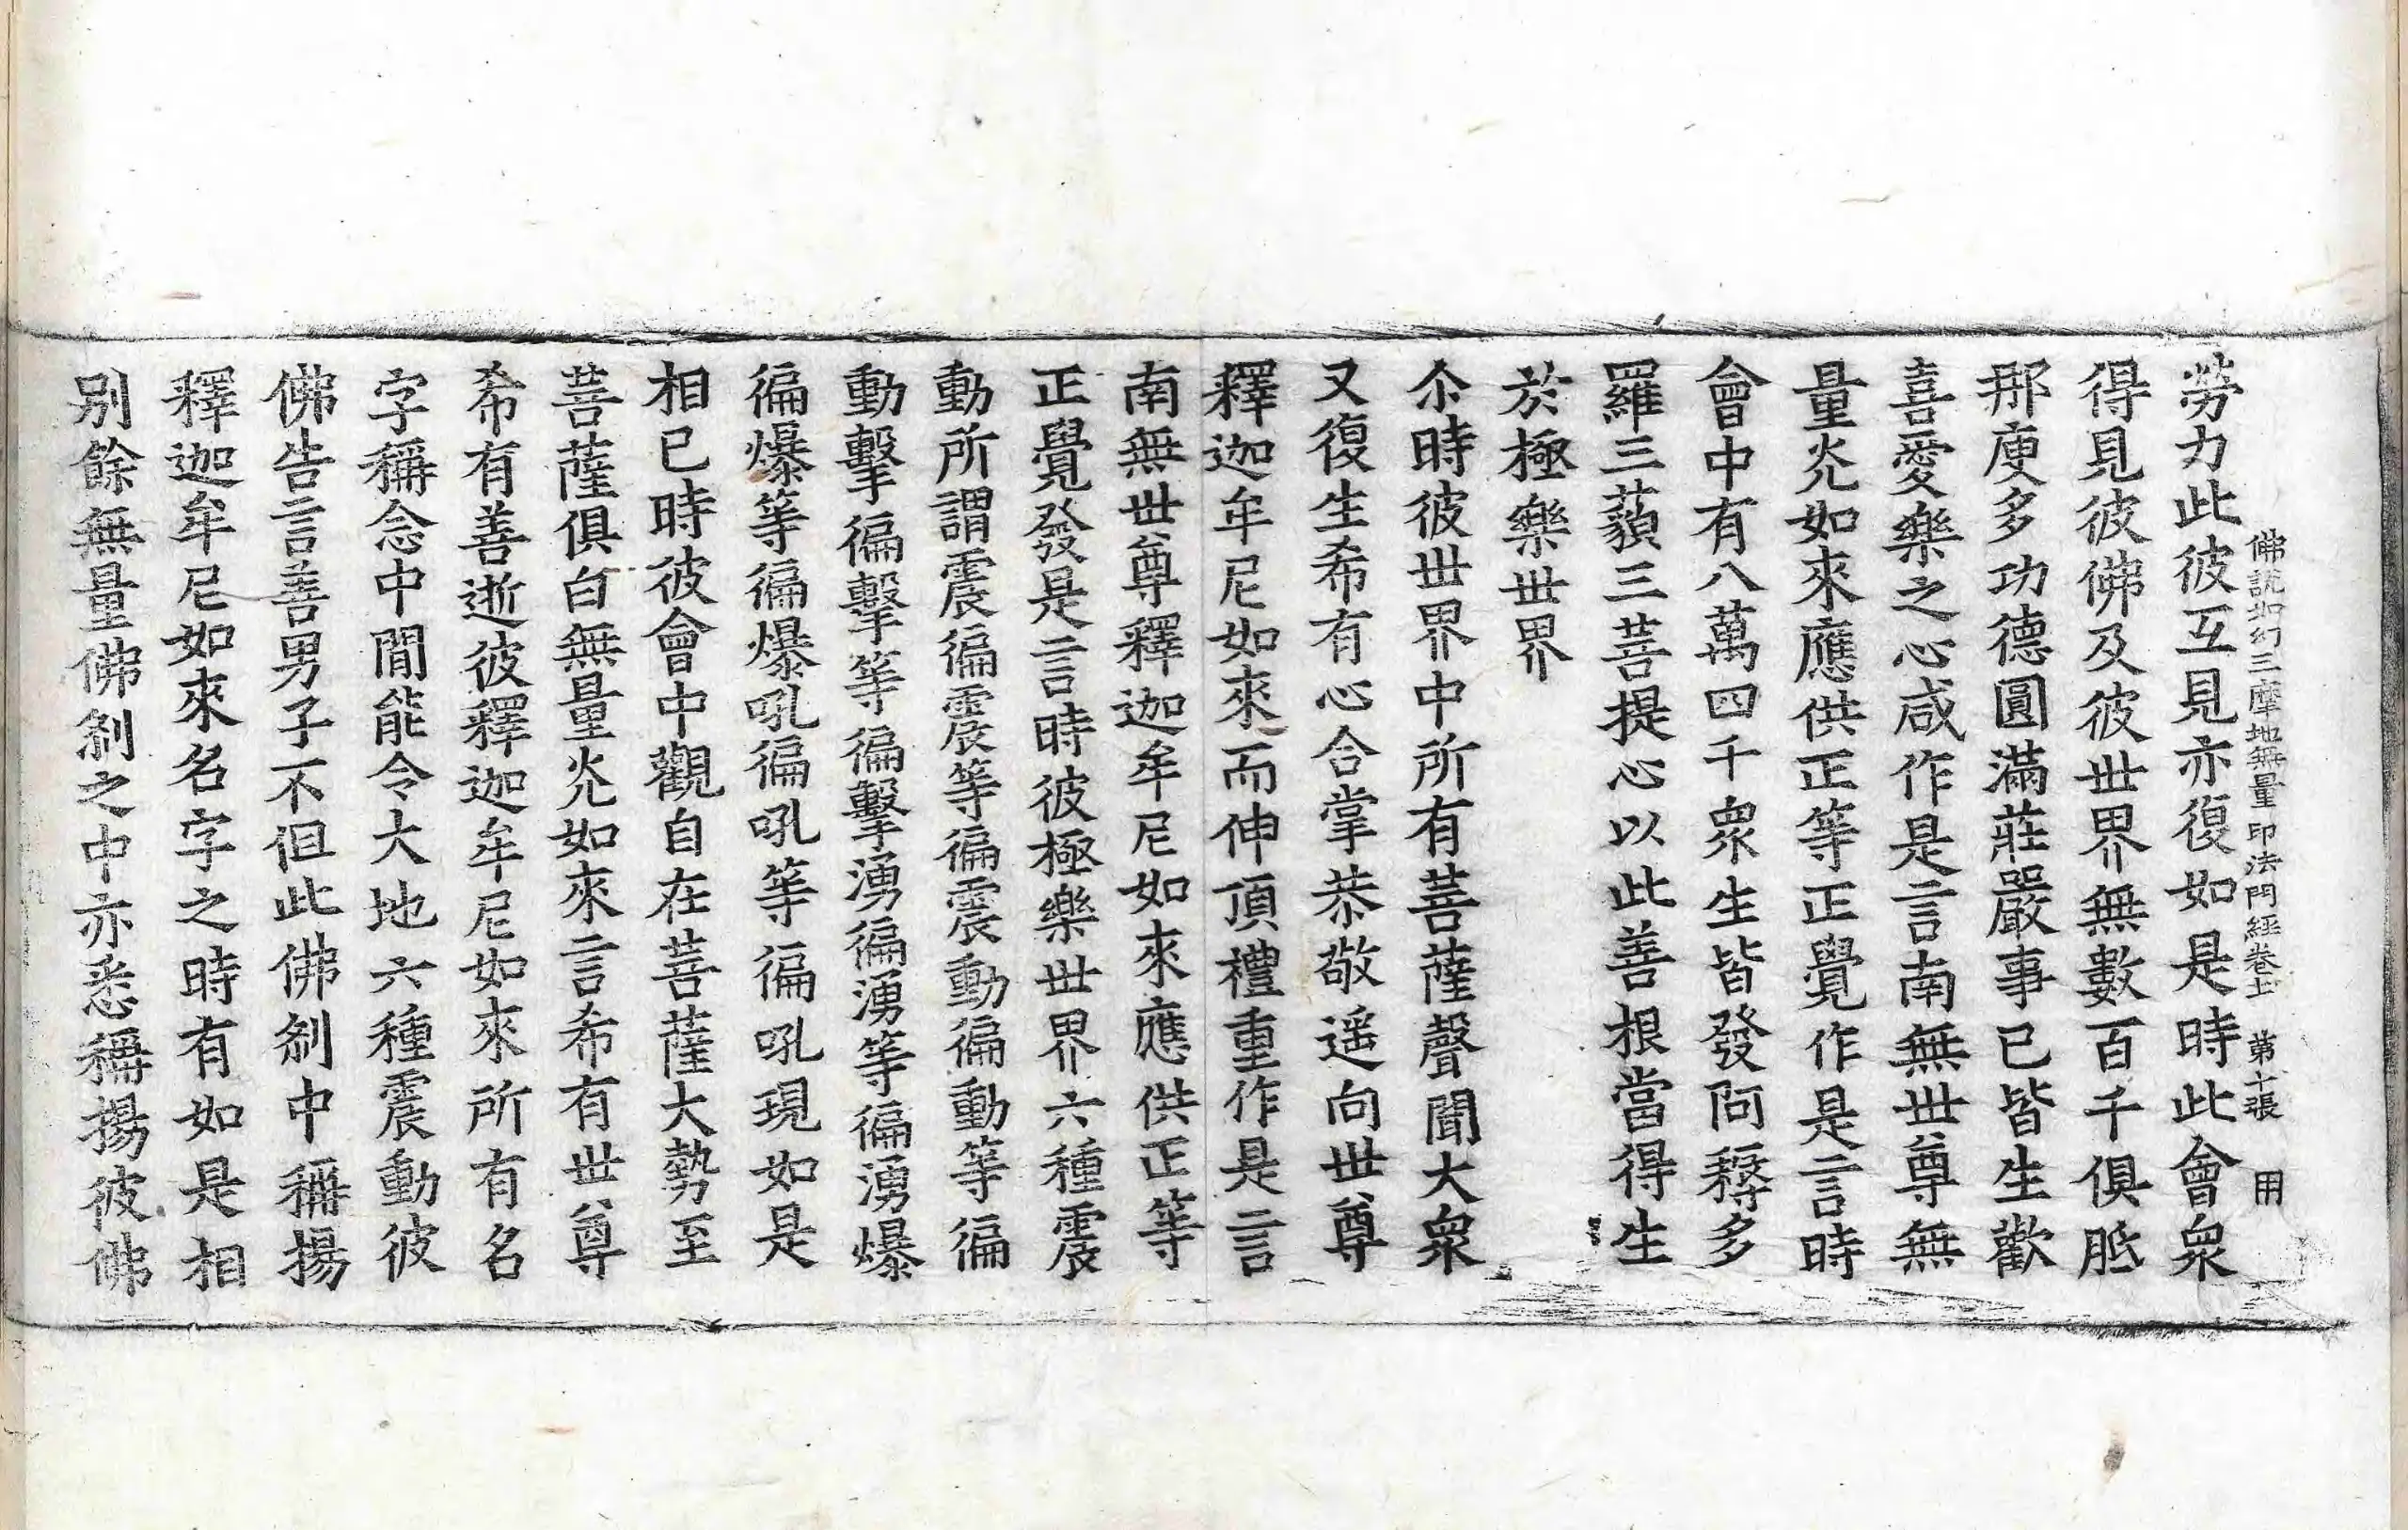 佛說如幻三摩地無量印法門經卷上 第十張 用
勞力此彼互見亦復如是時此會衆
得見彼佛及彼世界無數百千俱胝
那庾多功德圓滿莊嚴事已皆生歡
喜愛樂之心咸作是言南無世尊無
量光如來應供正等正覺作是言時
會中有八萬四千衆生皆發阿耨多
羅三藐三菩提心以此善根當得生
於極樂世界
尒時彼世界中所有菩薩聲聞大衆
又復生希有心合掌恭敬遥向世尊
釋迦牟尼如來而伸頂禮重作是言
南無世尊釋迦牟尼如來應供正等
正覺發是言時彼極樂世界六種震
動所謂震徧震等徧震動徧動等徧
動擊徧擊等徧擊湧徧湧等徧湧爆
徧爆等徧爆吼徧吼等徧吼現如是
相已時彼會中觀自在菩薩大勢至
菩薩俱白無量光如來言希有世尊
希有善逝彼釋迦牟尼如來所有名
字稱念中間能令大地六種震動彼
佛告言善男子不但此佛剎中稱揚
釋迦牟尼如來名字之時有如是相
别餘無量佛剎之中亦悉稱揚彼佛